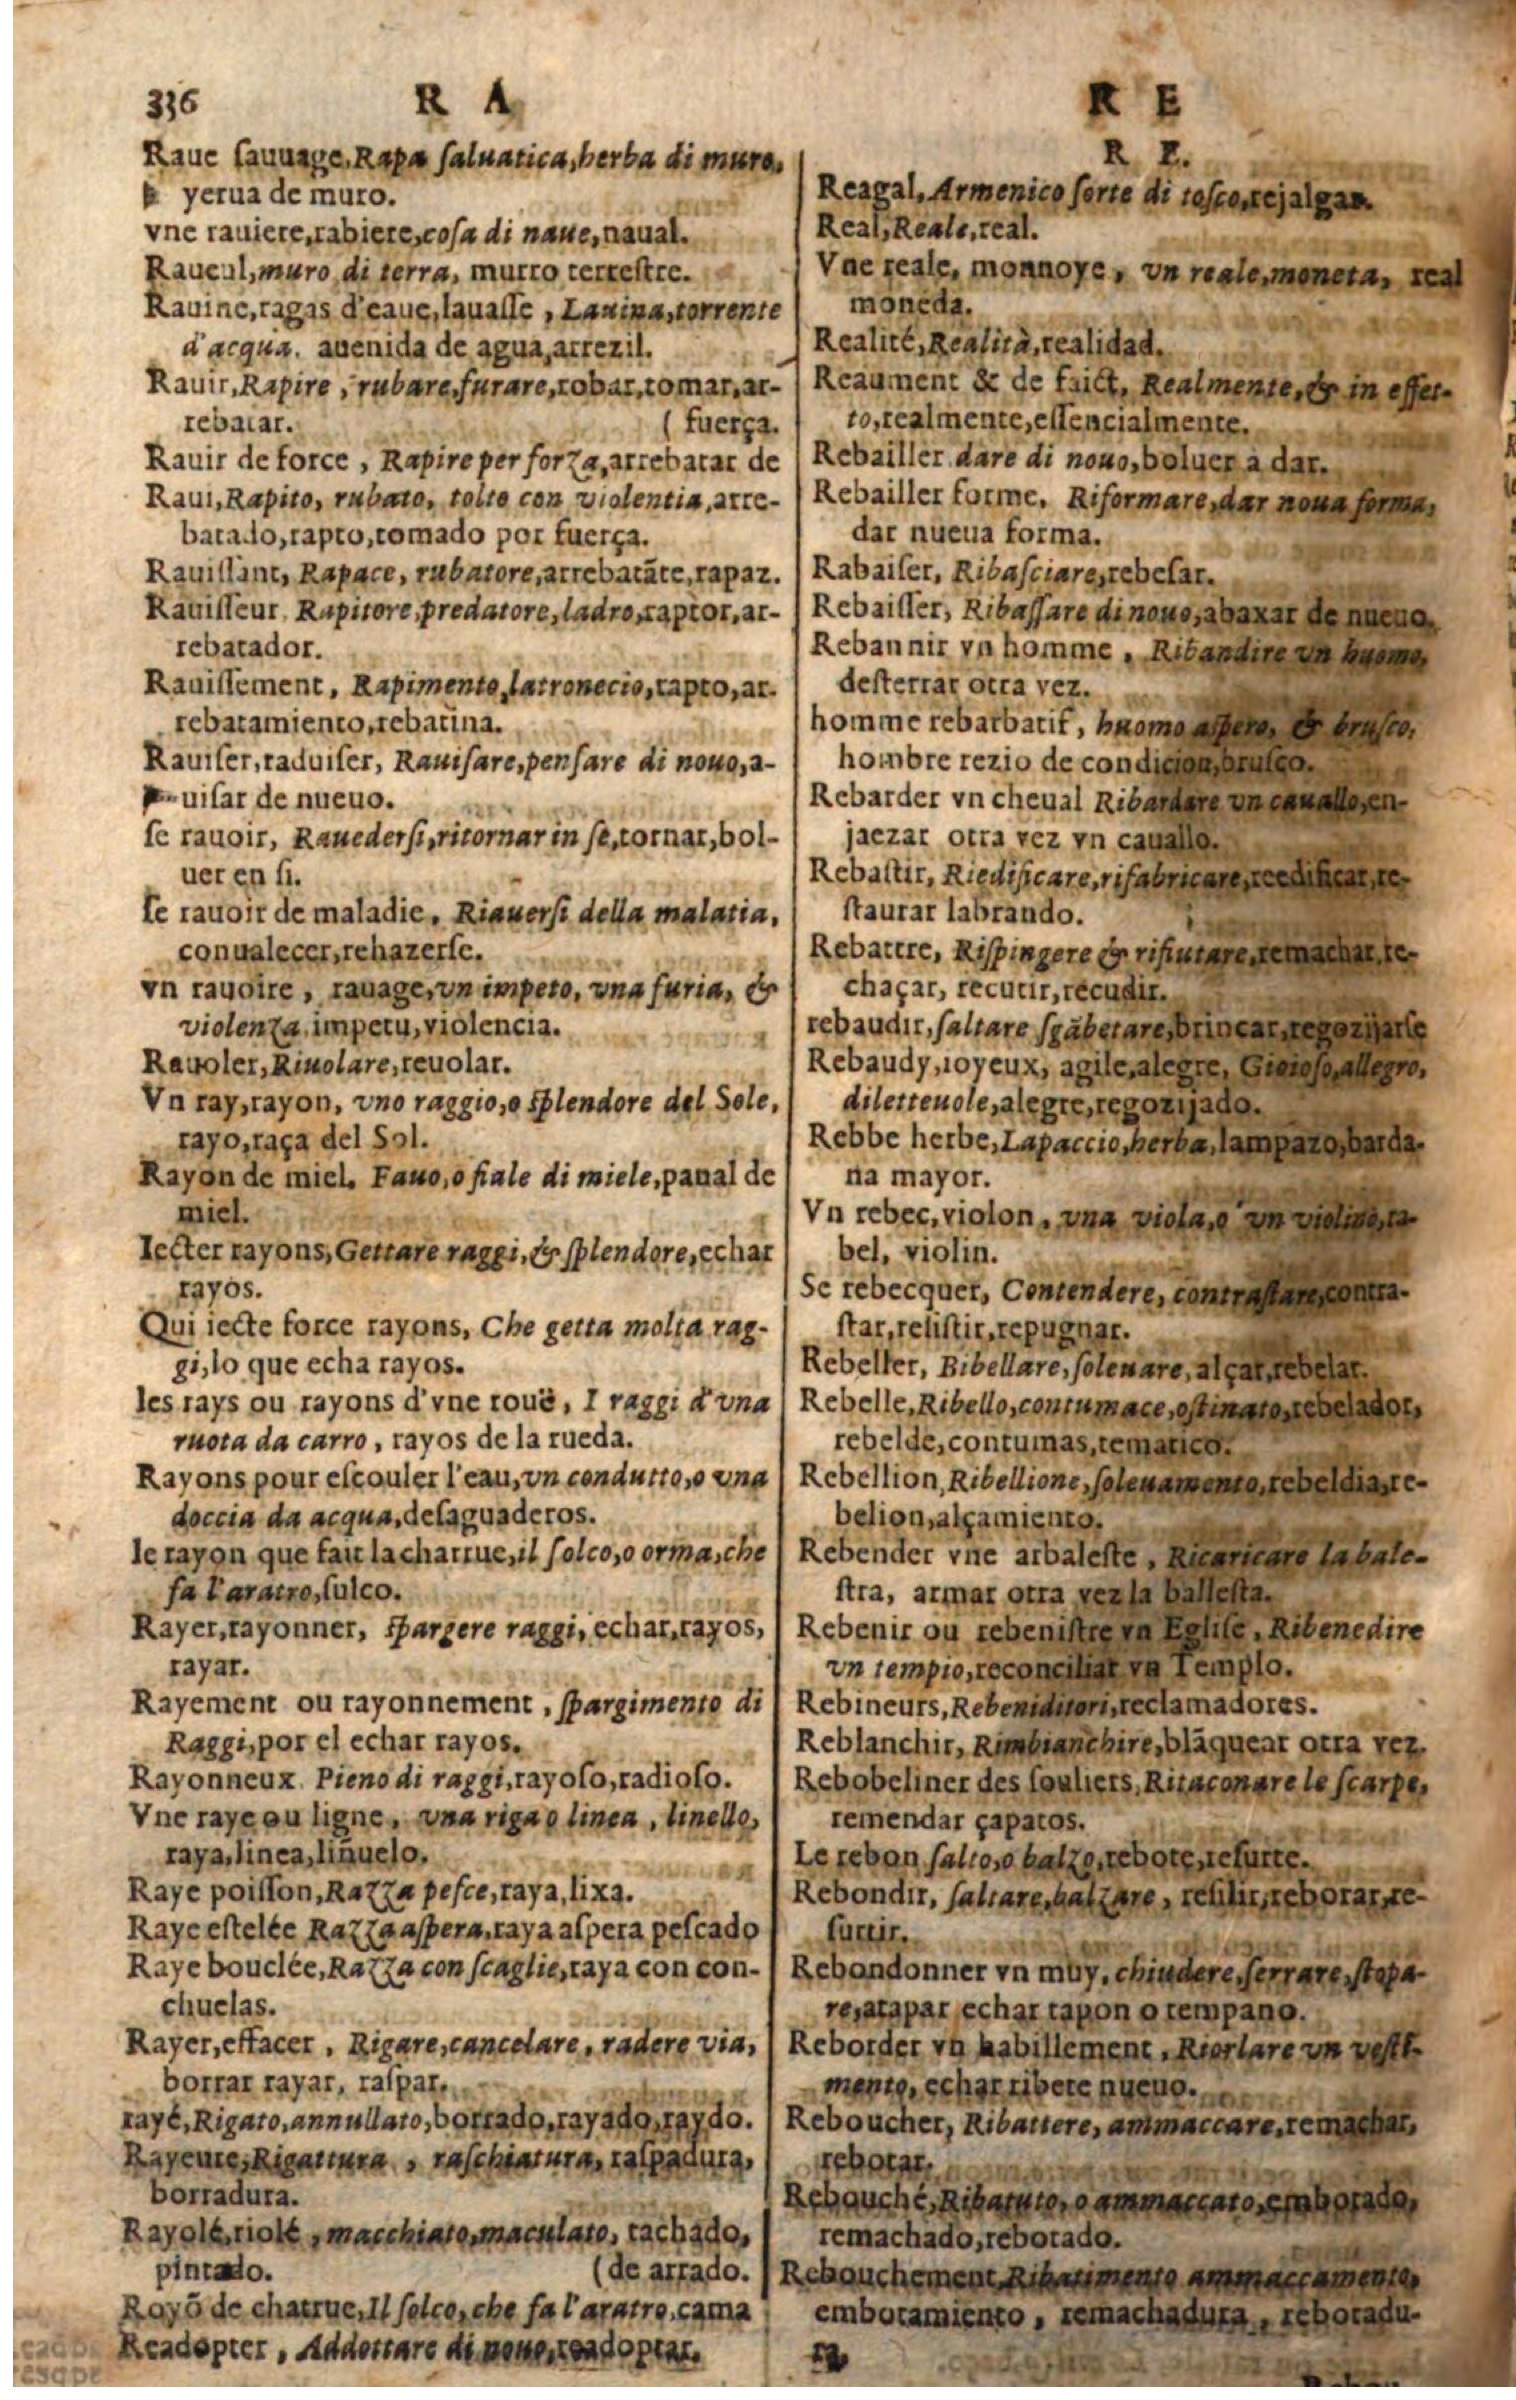 336 R A
Raue sauuage, Rapa saluatica, herba di muro,
yerua de muro.
vne rauiere, rabiere, cosa di naue, naual.
Raueul, muro di terra, murro terrestre.
Rauine, ragas d'eaue, lauasse, Lauina, torrente
d'acqua. auenida de agua, arrezil.
Rauir, Rapire, rubare, furare, robar, tomar, ar-
rebatar. ( fuerça.
Rauir de force, Rapire per forza, arrebatar de
Raui, Rapito, rubato, tolto con violentia, arre-
batado, rapto, tomado por fuerça.
Rauissant, Rapace, rubatore, arrebatāte, rapaz.
Rauisseur, Rapitore, predatore, ladro, raptor, ar-
rebatador.
Rauissement, Rapimento, latronecio, rapto, ar-
rebatamiento, rebatina.
Rauiser, raduiser, Rauisare, pensare di nouo, a-
uisar de nueuo.
se rauoir, Rauedersi, ritornar in se, tornar, bol-
uer en si.
se rauoir de maladie, Riauersi della malatia,
conualecer, rehazerse.
vn rauoire, rauage, vn impeto, vna furia, &
violenza, impetu, violencia.
Rauoler, Riuolare, reuolar.
Vn ray, rayon, vno raggio, o splendore del Sole,
rayo, raça del Sol.
Rayon de miel. Fauo, o fiale di miele, panal de
miel.
Iecter rayons, Gettare raggi, & splendore, echar
rayos.
Qui iecte force rayons, Che getta molta rag-
gi, lo que echa rayos.
les rays ou rayons d'vne rouë, I raggi d'vna
ruota da carro, rayos de la rueda.
Rayons pour escouler l'eau, vn condutto, o vna
doccia da acqua, desaguaderos.
le rayon que fait la charrue, il solco, o orma, che
fa l'aratro, sulco.
Rayer, rayonner, spargere raggi, echar, rayos,
rayar.
Rayement ou rayonnement, spargimento di
Raggi, por el echar rayos.
Rayonneux Pieno di raggi, rayoso, radioso.
Vne raye ou ligne, vna riga o linea, linello,
raya, linea, liñuelo.
Raye poisson, Razza pesce, raya, lixa.
Raye estelée Razza aspera, raya aspera pescado
Raye bouclée, Razza con scaglie, raya con con-
chuelas.
Rayer, effacer, Rigare, cancelare, radere via,
borrar rayar, raspar.
rayé, Rigato, annullato, borrado, rayado, raydo.
Rayeure, Rigattura, raschiatura, raspadura,
borradura.
Rayolé, riolé, macchiato, maculato, tachado,
pintado. (de arrado.
Royō de charrue, Il solco, che fa l'aratro, cama
Readopter, Addottare di nouo, readoptar.
R E
R E.
Reagal, Armenico sorte di tosco, rejalgar.
Real, Reale, real.
Vne reale, monnoye, vn reale, moneta, real
moneda.
Realité, Realità, realidad.
Reaument & de faict, Realmente, & in effet-
to, realmente, essencialmente.
Rebailler dare di nouo, boluer a dar.
Rebailler forme, Riformare, dar noua forma,
dar nueua forma.
Rabaiser, Ribasciare, rebesar.
Rebaisser, Ribassare di nouo, abaxar de nueuo.
Rebannir vn homme, Ribandire vn huomo,
desterrar otra vez.
homme rebarbatif, huomo aspero, & brusco,
hombre rezio de condicion, brusco.
Rebarder vn cheual Ribardare vn cauallo, en-
jaezar otra vez vn cauallo.
Rebastir, Riedificare, rifabricare, reedificar, re-
staurar labrando.
Rebattre, Rispingere & rifiutare, remachar, re-
chaçar, recutir, recudir.
rebaudir, saltare sgābetare, brincar, regozijarse
Rebaudy, ioyeux, agile, alegre, Gioioso, allegro,
diletteuole, alegre, regozijado.
Rebbe herbe, Lapaccio, herba, lampazo, barda-
na mayor.
Vn rebec, violon, vna viola, o vn violino, ra-
bel, violin.
Se rebecquer, Contendere, contrastare, contra-
star, resistir, repugnar.
Rebeller, Bibellare, soleuare, alçar, rebelar.
Rebelle, Ribello, contumace, ostinato, rebelador,
rebelde, contumas, tematico.
Rebellion, Ribellione, soleuamento, rebeldia, re-
belion, alçamiento.
Rebender vne arbaleste, Ricaricare la bale-
stra, armar otra vez la ballesta.
Rebenir ou rebenistre vn Eglise, Ribenedire
vn tempio, reconciliar vn Templo.
Rebineurs, Rebeniditori, reclamadores.
Reblanchir, Rimbianchire, blāquear otra vez.
Rebobeliner des souliers, Ritaconare le scarpe,
remendar çapatos.
Le rebon salto, o balzo, rebote, resurte.
Rebondir, saltare, balzare, resilir, rebotar, re-
surtir.
Rebondonner vn muy, chiudere, serrare, stopa-
re, atapar echar tapon o tempano.
Reborder vn habillement, Riorlare vn vesti-
mento, echar ribete nueuo.
Reboucher, Ribattere, ammaccare, remachar,
rebotar.
Rebouché, Ribatuto, o ammaccato, embotado,
remachado, rebotado.
Rebouchement, Ribatimento ammaccamento,
embotamiento, remachadura, rebotadu-
ra